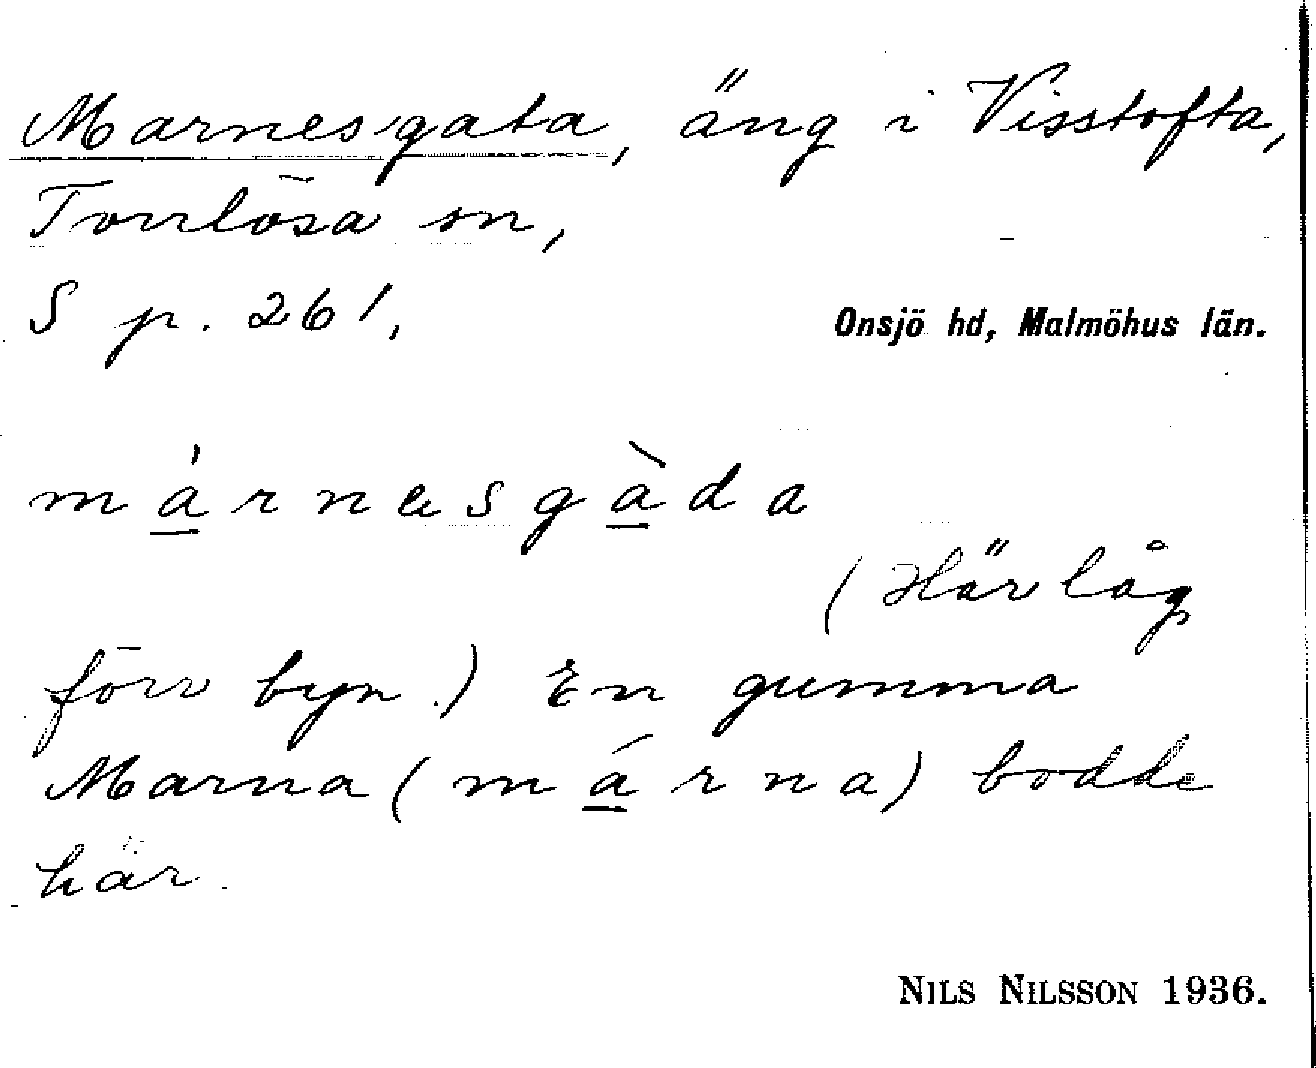 Marnesgata, äng i Visstofta,
Torrlösa sn,
S p. 261,
Onsjö hd, Malmöhus län.
má̲rnesgà̲da
(Här låg
förr byn.) En gumma
Marna (má̲rna) bodde
här.
NILS NILSSON 1936.